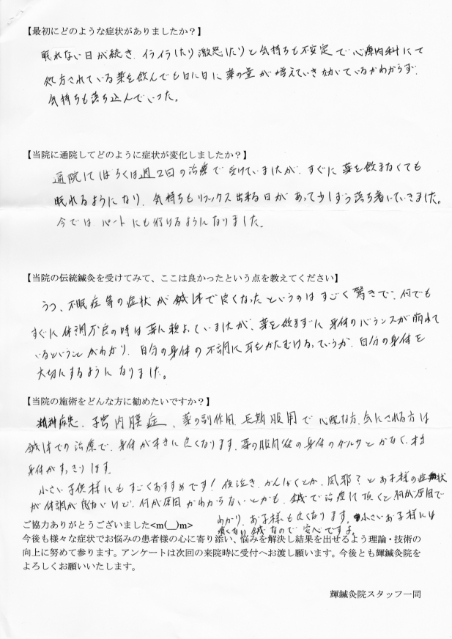 【最初にどのような症状がありましたか？】
眠れない日が続き、イライラしたり激怒したりと気持ちも不安定で心療内科にて
処方されている薬を飲んでも日に日に薬の量が増えていき効いているかわからず、
気持ちも落ち込んでいった。
【当院に通院してどのように症状が変化しましたか？】
通院してしばらくは週2回の治療で受けていましたが、すぐに薬を飲まなくても
眠れるようになり、気持ちもリラックス出来る日があって少しずつ落ち着いてきました。
今では パートにも行けるようになりました。
【当院の伝統鍼灸を受けてみて、ここは良かったという点を教えてください】
うつ、不眠症等の症状が鍼灸で良くなったというのはすごく驚きで、何でも
すぐに体調不良の時は薬に頼よっていましたが、薬を飲まずに身体のバランスが崩れて
いるということがわかり、自分の身体の不調に耳をかたむける。ていうか、自分の身体を
大切にするようになりました。
【当院の施術をどんな方に勧めたいですか？】
精神疾患、子宮内膜症、薬の副作用 長期服用で心配な方、気にされる方は
鍼灸での治療で、身体が本当に良くなります。薬の服用後の身体のダルサとかなく、
身体がすっきりします。
小さい子供様にもすごくおすすめです！夜泣き、かんしゃくとか、風邪？とお子様の症状
が体調が悪いけど、何が原因かわからないとかも、鍼で治療して頂くと何が原因で
わかり、お子様も良くなります。小さいお子様には
痛くない鍼なので安心ですよ。
ご協力ありがとうございました<m(__)m>
今後も様々な症状でお悩みの患者様の心に寄り添い、悩みを解決し結果を出せるよう理論・技術の
向上に努めて参ります。アンケートは次回の来院時に受付へお渡し願います。今後とも輝鍼灸院を
よろしくお願いいたします。
輝鍼灸院スタッフ一同